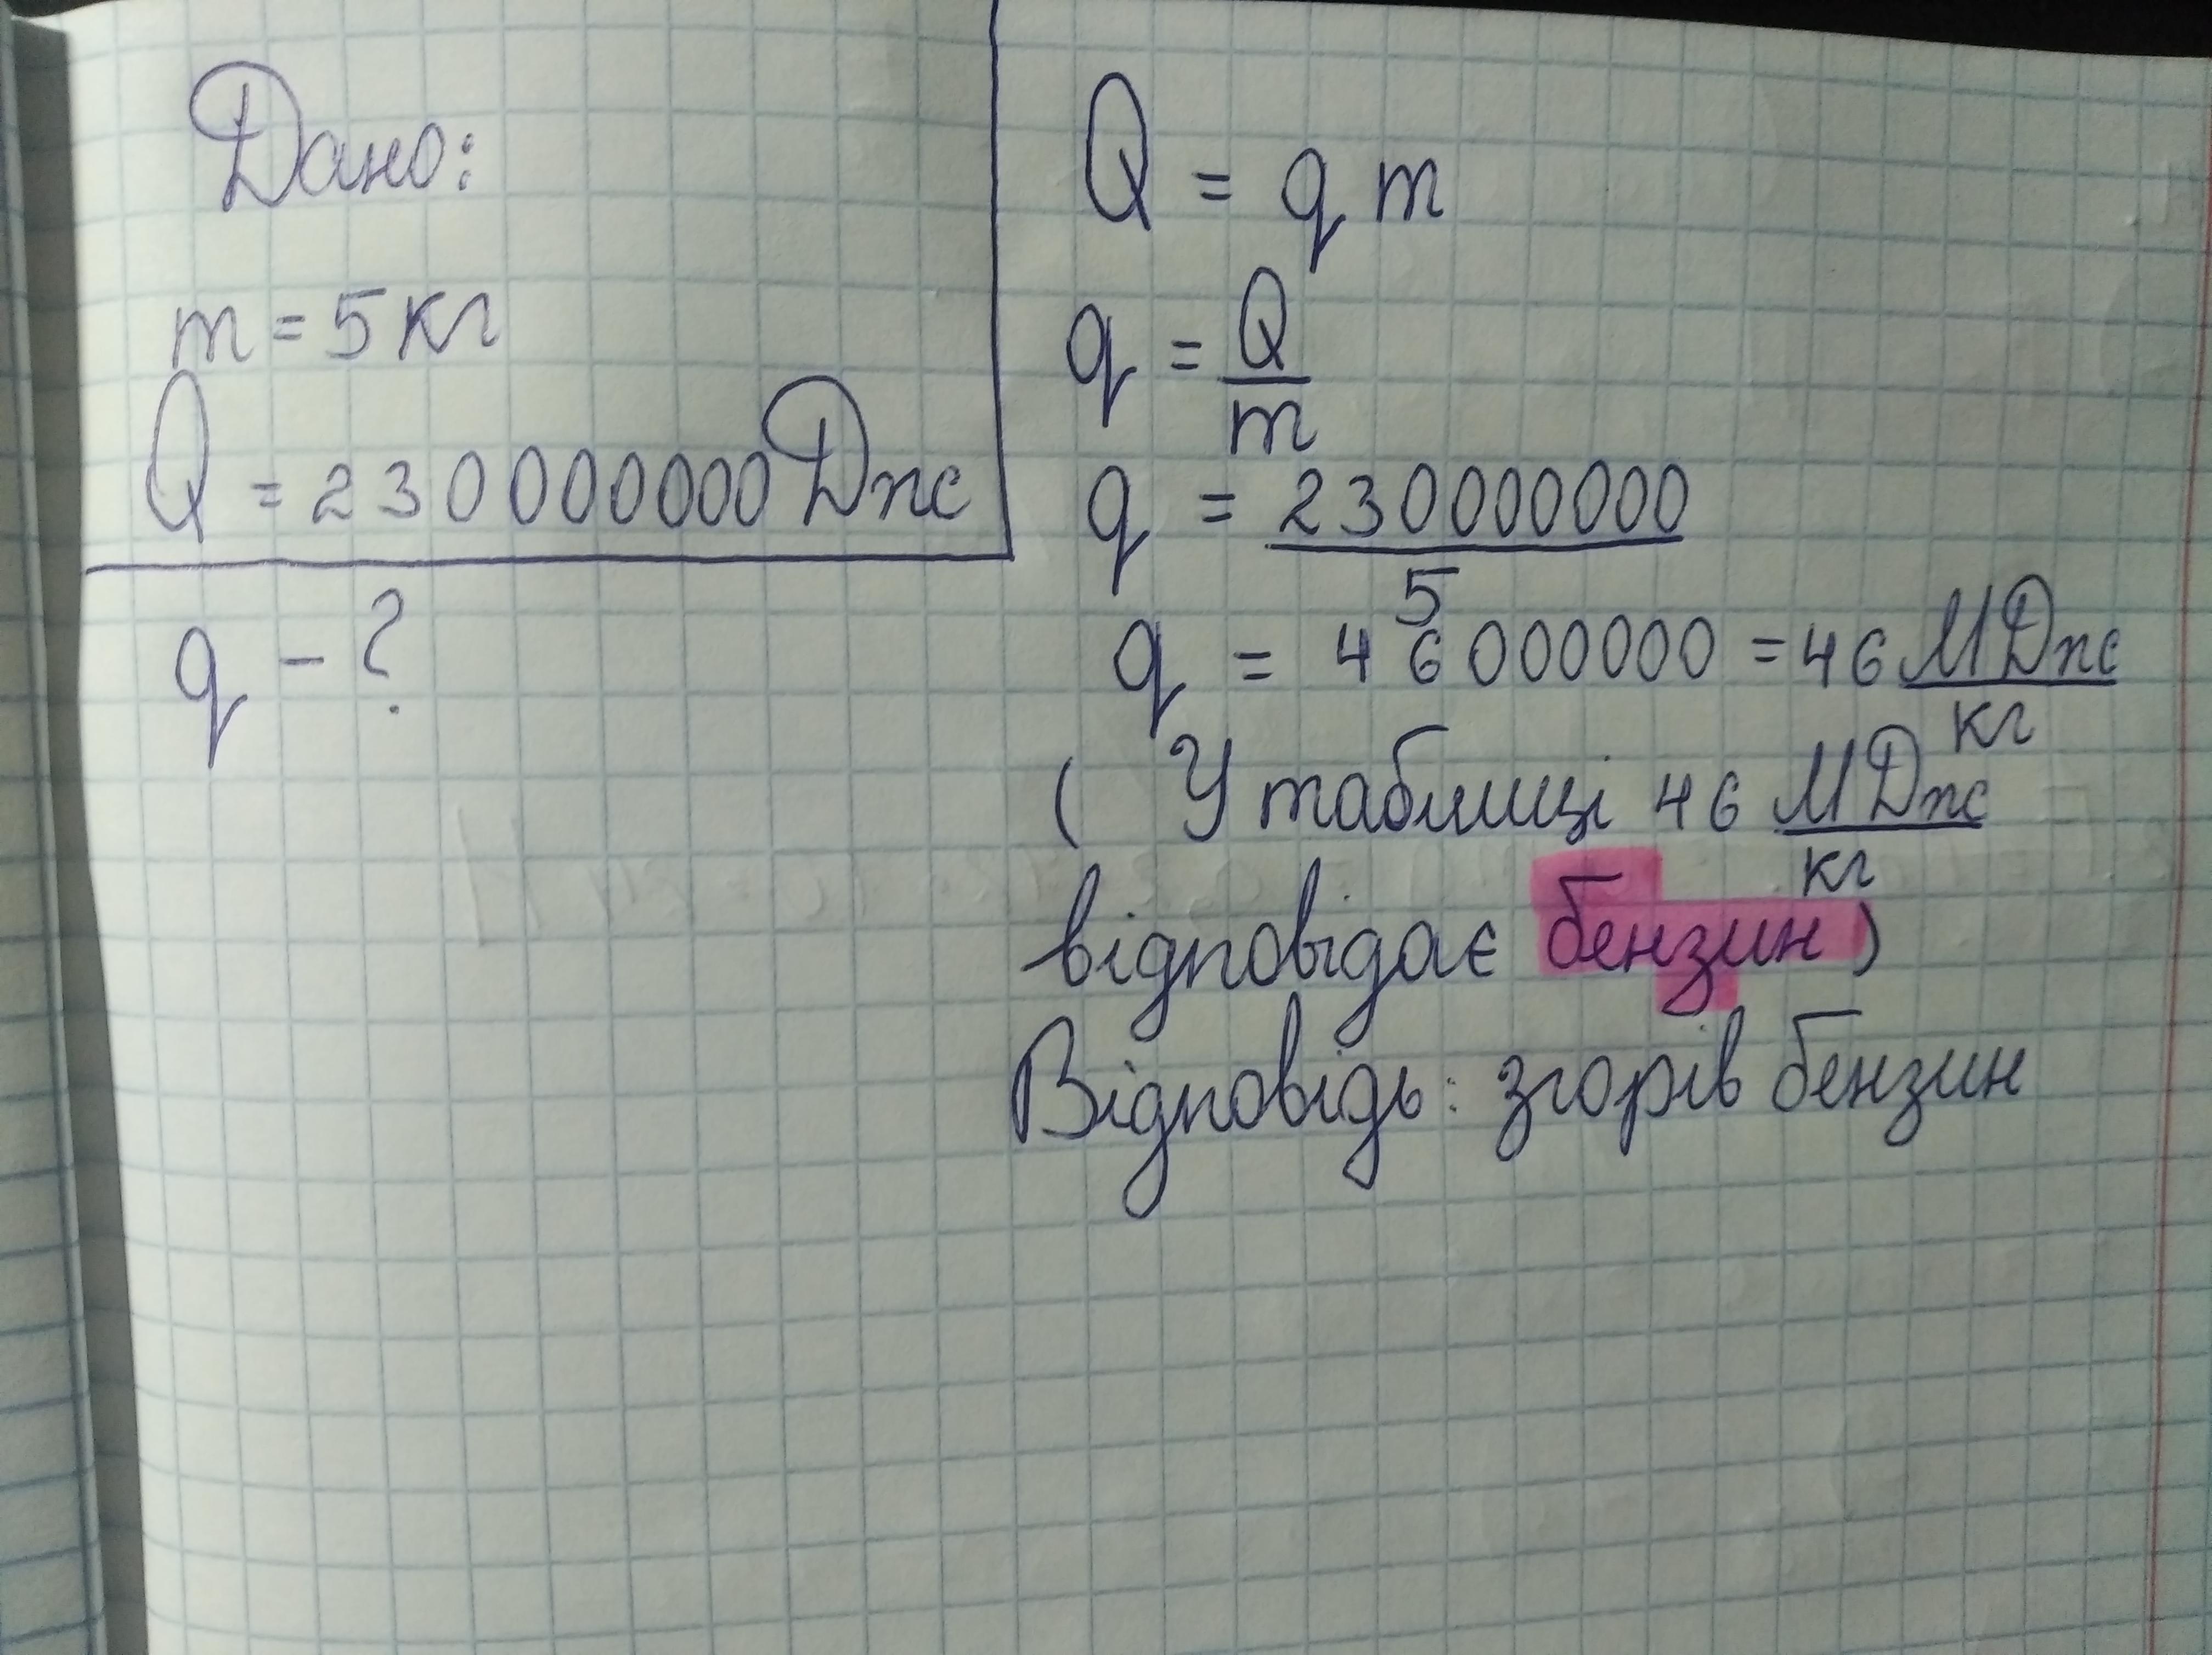 Дано:
m = 5 кг
Q = 230000000 Дж
q - ?
Q = q m
q = Q/m
q = 230000000/5
q = 46000000 = 46 МДж/кг
( У таблиці 46 МДж/кг
відповідає бензин)
Відповідь: згорів бензин